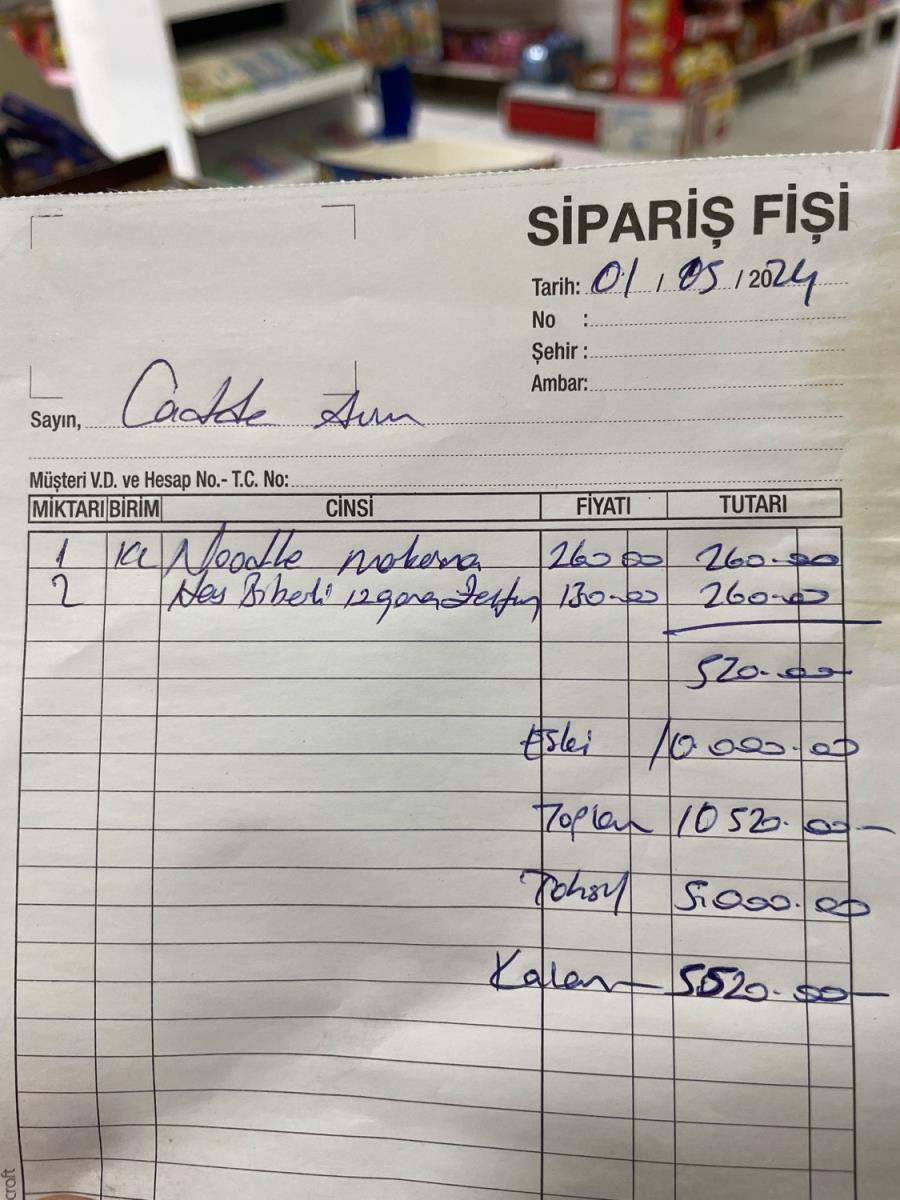 SİPARİŞ FİŞİ
Tarih: 01 / 05 / 2024
No :
Şehir :
Ambar:
Sayın, Cadde Avm
Müşteri V.D. ve Hesap No.- T.C. No:
MİKTARI BİRİM CİNSİ FİYATI TUTARI
1 KL Noodle makarna 260.00 260.00
2 Biberli 130.00 260.00
520.00
Eski 10 000.00
Toplam 10 520.00
Tahsil 5.000.00
Kalan 5520.00
craft